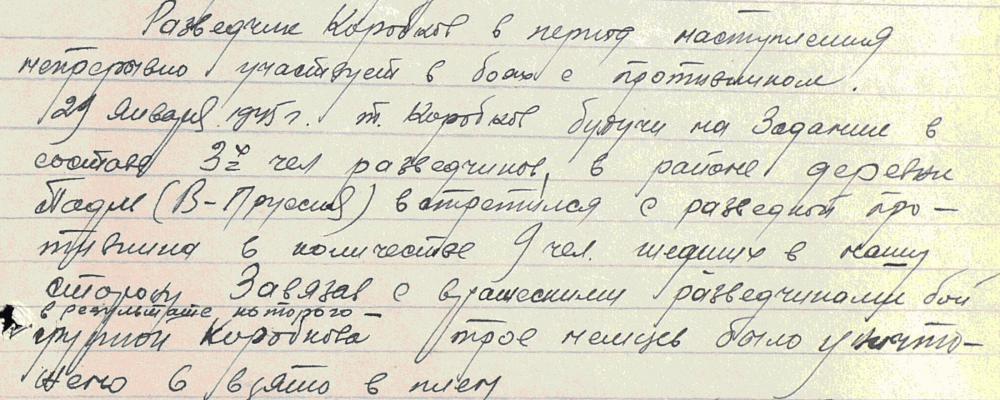 Разведчик Коробков в период наступления
непрерывно участвует в боях с противником.
29 Января 1945 г. т. Коробков будучи на Задание в
составе 3х чел разведчиков, в районе деревни
(В-Пруссия) встретился с разведкой про-
тивника в количестве 9 чел. шедших в нашу
сторону Завязав с вражескими разведчиками бой
в результате которого –
группой Коробкова трое немцев было уничто-
жено 6 взято в плен